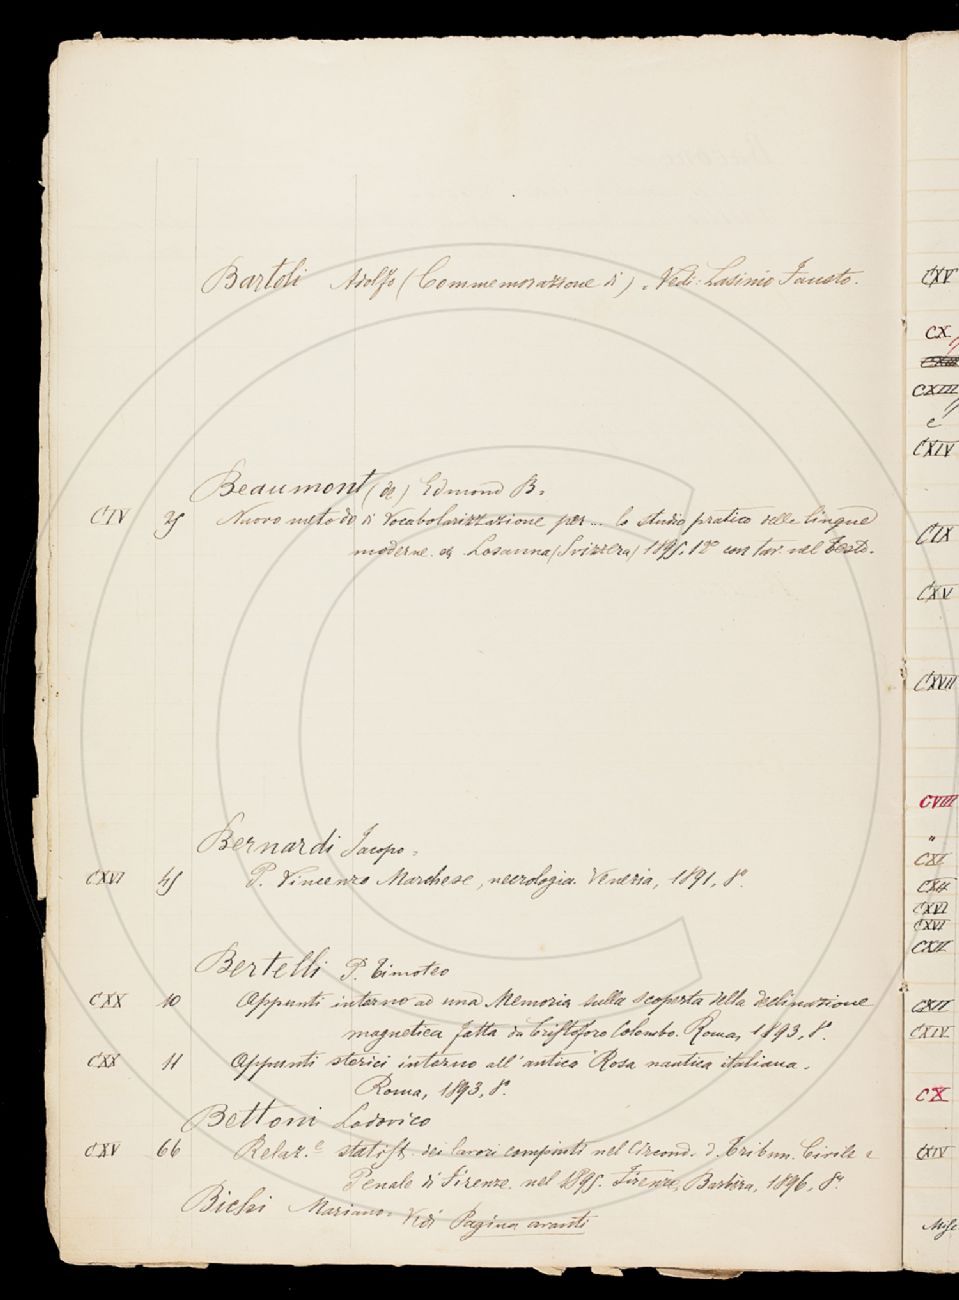 Bartoli Adolfo (Commemorazione di). Vedi: Lasinio Fausto.
Beaumont (de) Edmond B.
CIV 25 Nuovo metodo di Vocabolarizzazione per... lo studio pratico delle lingue
moderne. Losanna (Svizzera) 1895. 12° con tav. nel testo.
Bernardi Jacopo.
CXVI 45 P. Vincenzo Marchese, necrologia. Venezia, 1891, 8°.
Bertelli P. Timoteo
CXX 10 Appunti intorno ad una Memoria sulla scoperta della declinazione
magnetica fatta da Cristoforo Colombo. Roma, 1893, 8°.
CXX 11 Appunti storici intorno all'antica Rosa nautica italiana.
Roma, 1893, 8°.
Bettoni Lodovico
CXV 66 Relaz.e statist. dei lavori compiuti nel Circond. d. Tribun. Civile e
Penale di Firenze. nel 1895. Firenze, Barbèra, 1896, 8°.
Bichi Mariano. Vedi Pagina avanti
CXV
CX
CXIII
e
CXIV
CIX
CXV
CXVII
CVIII
"
CXI
CXII
CXVI
CXVI
CXII
CXII
CXIV
CX
CXIV